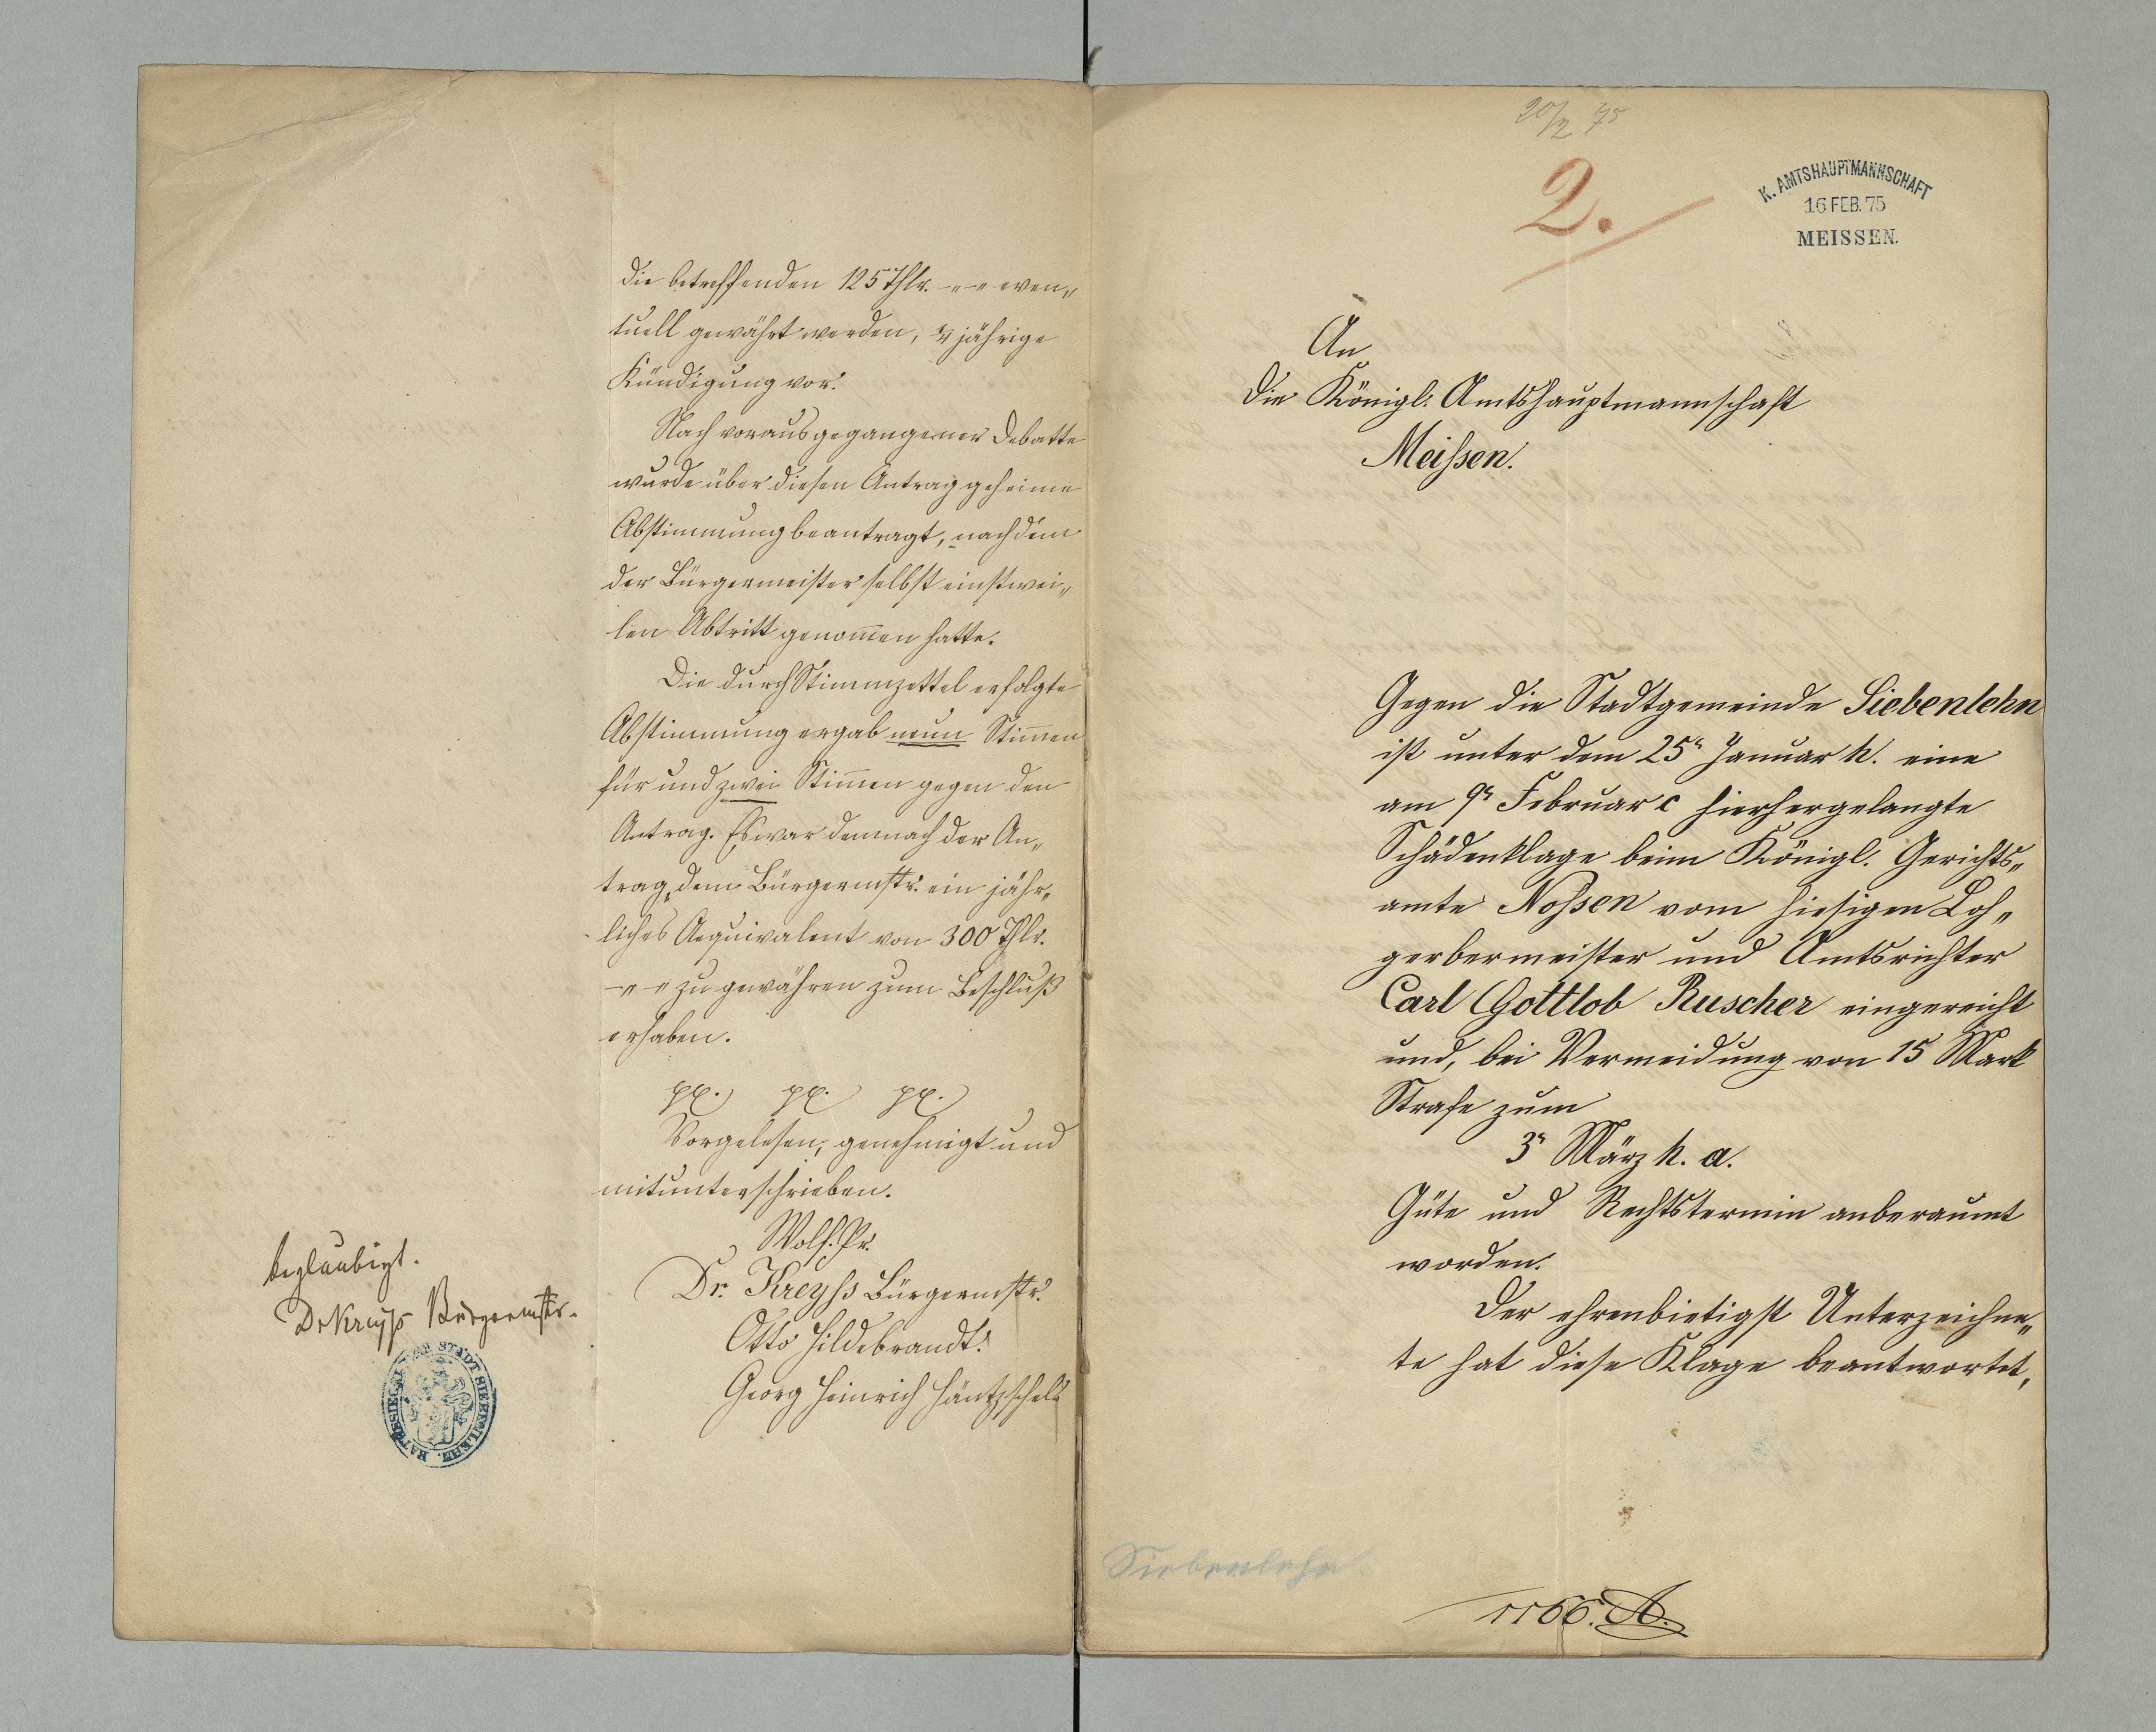 die betreffenden 125 Thlr. -„-„ even„
tuell gewährt werden, ¼ jährige
Kündigung vor.
Nach vorausgegangener Debatte
wurde über diesen Antrag geheime
Abstimmung beantragt, nachdem
der Bürgermeister selbst einstwei„
len Abtritt genom̄en hatte.
Die durch Stimmzettel erfolgte
Abstimmung ergab neun Stim̄en
für und zwei Stim̄en gegen den
Antrag. Es war demnach der An„
trag, dem Bürgermstr. ein jähr„
liches Aequivalent von 300 Thlr.
-„-„ zu gewähren zum Beschluß
erhoben.
pp. pp. pp.
Vorgelesen, genehmigt und
mitunterschrieben.
Wolf. Pr.
Dr. Kreyß Bürgermstr.
Otto Hildebrandt.
Georg Heinrich Häntzschel
beglaubigt.
Dr Kreyß Bürgermstr.
RATHSSIEGEL DER STADT SIEBENLEHN.
20/2 75
2.
K. AMTSHAUPTMANNSCHAFT
16 FEB. 75
MEISSEN.
An
die Königl. Amtshauptmannschaft
Meißen.
Gegen die Stadtgemeinde Siebenlehn
ist unter dem 25n Januar h. eine
am 9n Februar c hierhergelangte
Schädenklage beim Königl. Gerichts„
amte Noßen vom hiesigen Loh„
gerbermeister und Amtsrichter
Carl Gottlob Ruscher eingereicht
und, bei Vermeidung von 15 Mark
Strafe zum
3n März h. a.
Güte und Rechtstermin anberaumt
worden.
Der ehrenbietigst Unterzeichne„
te hat diese Klage beantwortet,
Siebenlehn
1166. A.